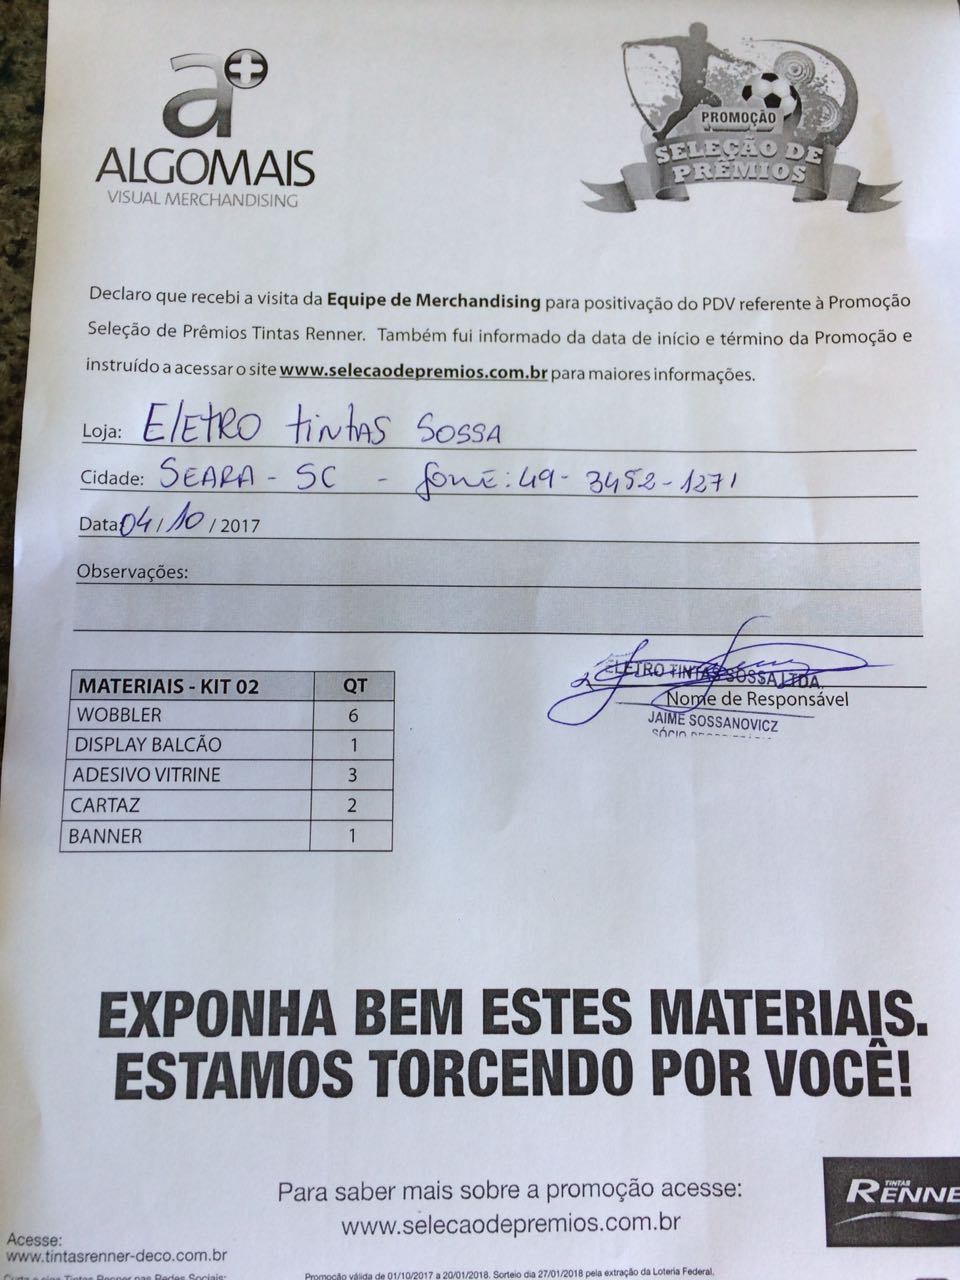 a+
ALGOMAIS
VISUAL MERCHANDISING
PROMOÇÃO
SELEÇÃO DE
PRÊMIOS
Declaro que recebi a visita da Equipe de Merchandising para positivação do PDV referente à Promoção
Seleção de Prêmios Tintas Renner. Também fui informado da data de início e término da Promoção e
instruído a acessar o site www.selecaodepremios.com.br para maiores informações.
Loja: ELETRO TINTAS SOSSA
Cidade: SEARA - SC - fone: 49- 3452-1271
Data 04/10/2017
Observações:
ELETRO TINTAS SOSSA LTDA.
Nome de Responsável
JAIME SOSSANOVICZ
SÓCIO
MATERIAIS - KIT 02 QT
WOBBLER 6
DISPLAY BALCÃO 1
ADESIVO VITRINE 3
CARTAZ 2
BANNER 1
EXPONHA BEM ESTES MATERIAIS.
ESTAMOS TORCENDO POR VOCÊ!
Para saber mais sobre a promoção acesse:
www.selecaodepremios.com.br
TINTAS
RENNE
Acesse:
www.tintasrenner-deco.com.br
Curta e siga Tintas Renner nas Redes Sociais:
Promoção válida de 01/10/2017 a 20/01/2018. Sorteio dia 27/01/2018 pela extração da Loteria Federal.